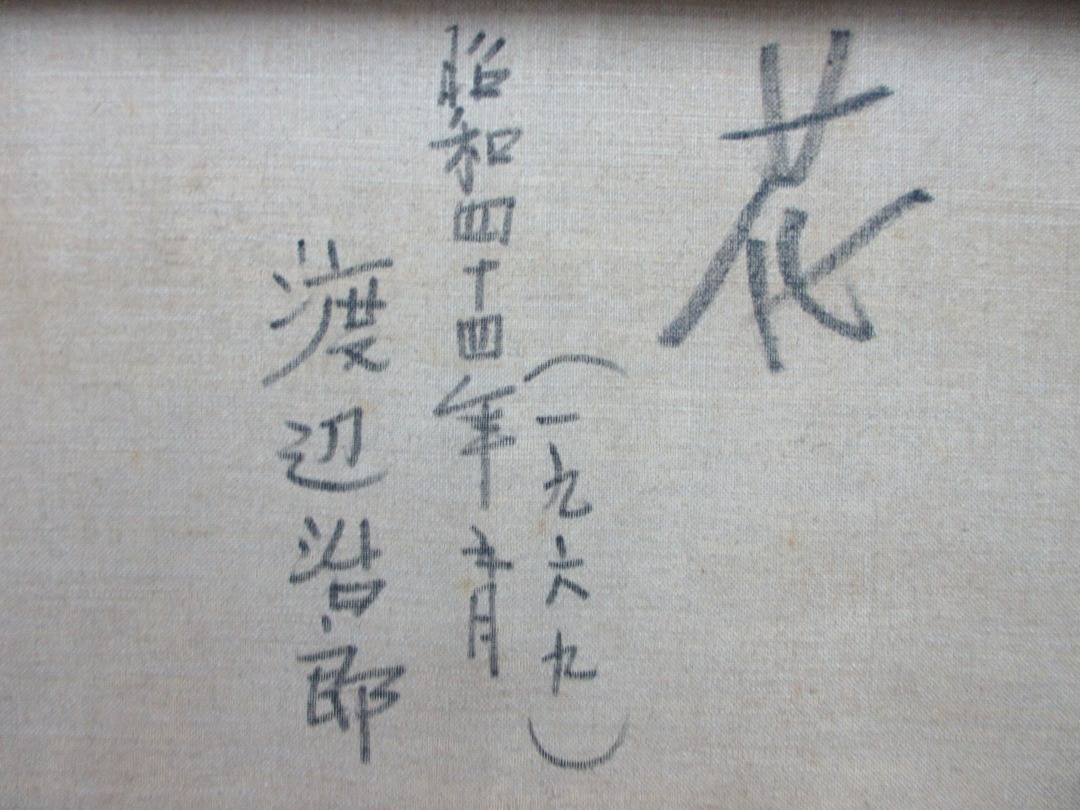 花
（一九六九）
昭和四十四年五月
渡辺浩郎